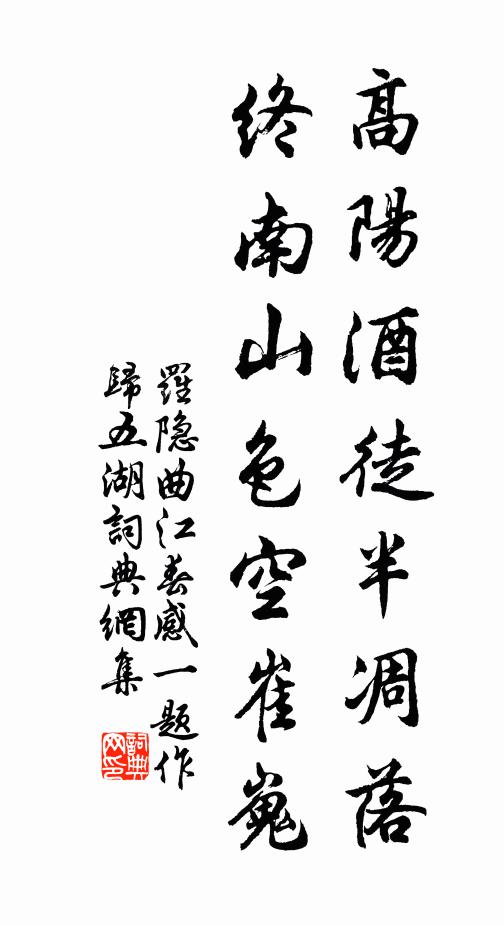 高陽酒徒半凋落
終南山色空崔嵬
羅隐曲江春感一題作
歸五湖詞典網集
詞典
网印